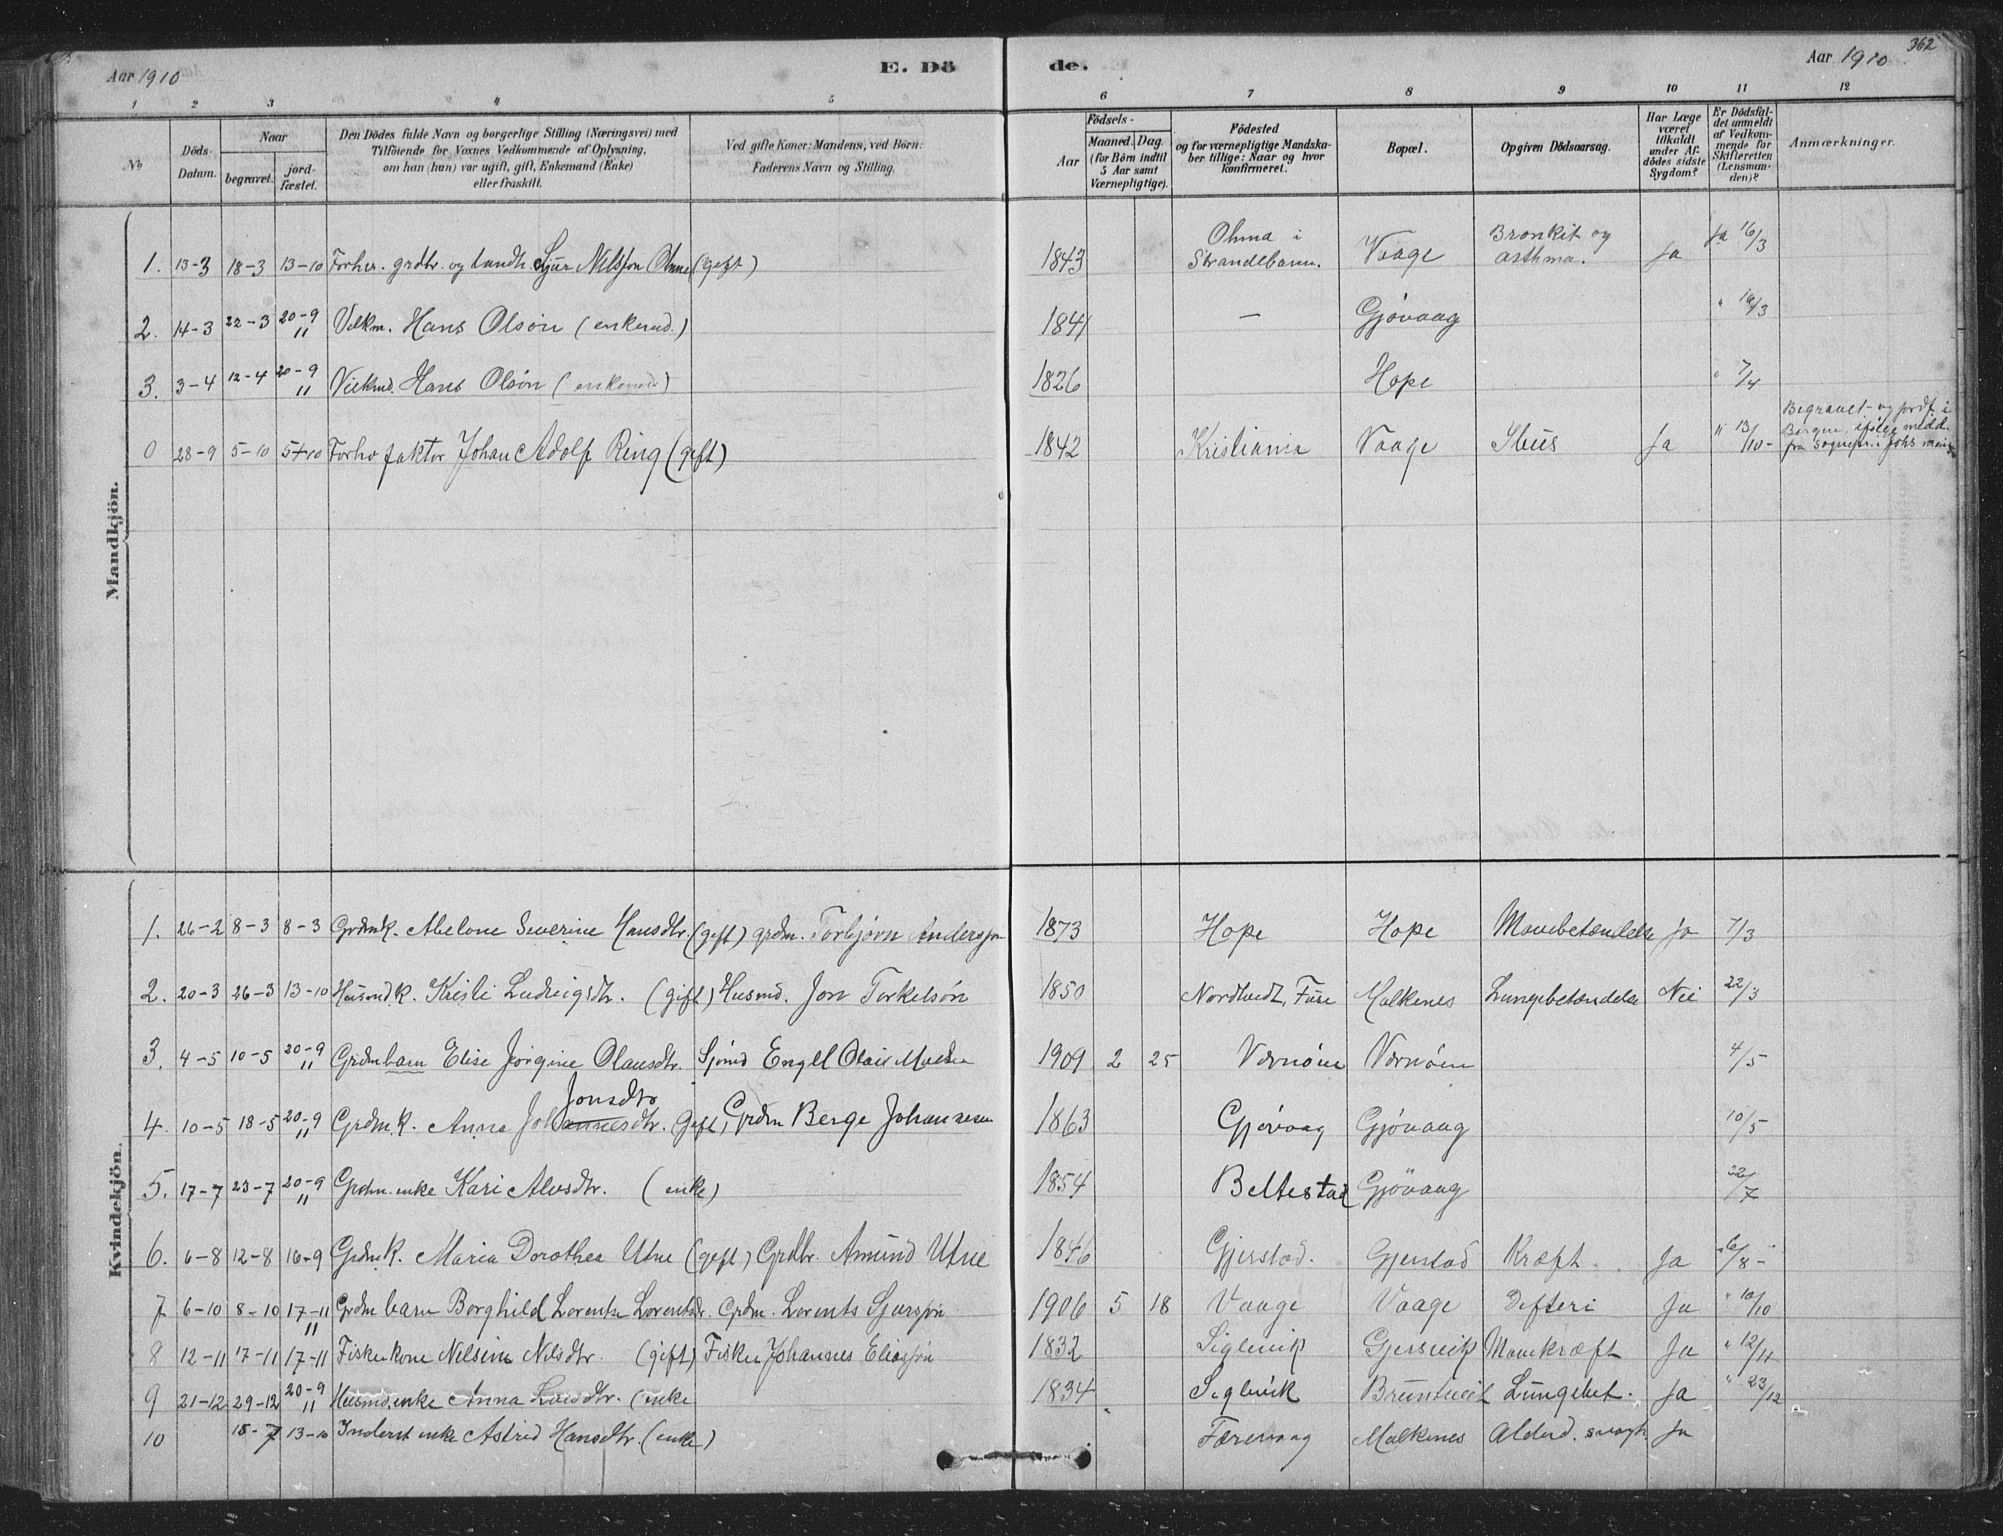 362
Aar 1910
E. Dö
de.
Aar 1910
1 2 3 4 5 6 7 8 9 10 11 12
No
Döds-
Datum.
Naar
begravet.
jord-
fæstet.
Den Dödes fulde Navn og borgerlige Stilling (Næringsvei) med
Tilföiende for Voxnes Vedkommende af Oplysning,
om han (hun) var ugift, gift, Enkemand (Enke)
eller fraskilt.
Ved gifte Koner: Mandens, ved Börn:
Faderens Navn og Stilling.
Födsels-
Aar
Maaned.
Dag.
(for Börn indtil
5 Aar samt
Værnepligtige).
Födested
og for værnepligtige Mandska-
ber tillige: Naar og hvor
konfirmeret.
Bopæl.
Opgiven Dödsaarsag.
Har Læge
været
tilkaldt
under Af-
dödes sidste
Sygdom?
Er Dödsfal-
det anmeldt
af Vedkom-
mende for
Skifteretten
(Lensman-
den)?
Anmærkninger.
Mandkjön.
1. 13-3 18-3 13-10 Forhv. grdbr. og landh. Sjur Nilsson Olme (gift) 1843 Olma i Strandebarm. Vaage Bronkit og asthma. Ja Ja 16/3
2. 14-3 22-3 20-9 " Velkm. Hans Olsön (enkemd.) 1841 — Gjövaag " 16/3
3. 3-4 12-4 20-9 " Hans Olsön (enkemd) 1826 Hope " 7/4
0 28-9 5-10 5-10 Forhv faktor Johan Adolf Ring (gift) 1842 Kristiania Vaage Ja " 13/10- Begravet og jordf i Bergen, ifölge medd. fra sognepr. i Johs men.
Kvindekjön.
1. 26-2 8-3 8-3 Grdmk. Abelone Severine Hansdtr. (gift) grdm. Torbjörn Andersson 1873 Hope Hope Mavebetændelse Ja 7/3
2. 20-3 26-3 13-10 Husmdk. Kristi Ludvigsdtr. (gift) Husmd. Jon Torkelsön 1850 Nordtvedt, Fuse Malkenes Lungebetændelse Nei 22/3
3. 4-5 10-5 20-9 " Grdmbarn Elise Jörgine Olausdtr. Sjömd Engel Olai 1909 2 25 Vernöen Vernöen 4/5
Jonsdtr
4. 10-5 18-5 20-9 " Grdmk. Anna Johannesdtr. Gift, Grdm Berge Johannesen 1863 Gjövaag Gjövaag 10/5
5. 17-7 23-7 20-9 " Grdm. enke Kari Alvsdtr. (enke) 1854 Beltestad Gjövaag 22/7
6. 6-8 12-8 16-9 Grdmk. Maria Dorothea Utne (gift) Grdbr. Amund Utne 1846 Gjerstad. Gjerstad Kræft. Ja 6/8-
7 6-10 8-10 17-11 " Grdm barn Borghild Lorentse Lorentsdr. Grdm. Lorents Sjursson 1906 5 18 Vaage Vaage Difteri Ja " 10/10
8 12-11 17-11 17-11 Fiskerkone Nilsine Nilsdtr. (gift) Fisker Johannes Eliassön 1832 Siglevik Gjersvik Mavekræft Ja " 12/11
9 21-12 29-12 20-9 " Husmd. enke Anna Larsdtr. (enke 1834 Siglevik Bruntveit Lungebet. Ja " 23/12
10 18-7 13-10 Inderst enke Astrid Hansdtr. (enke) Færevaag Malkenes Alderd. svagh. Ja